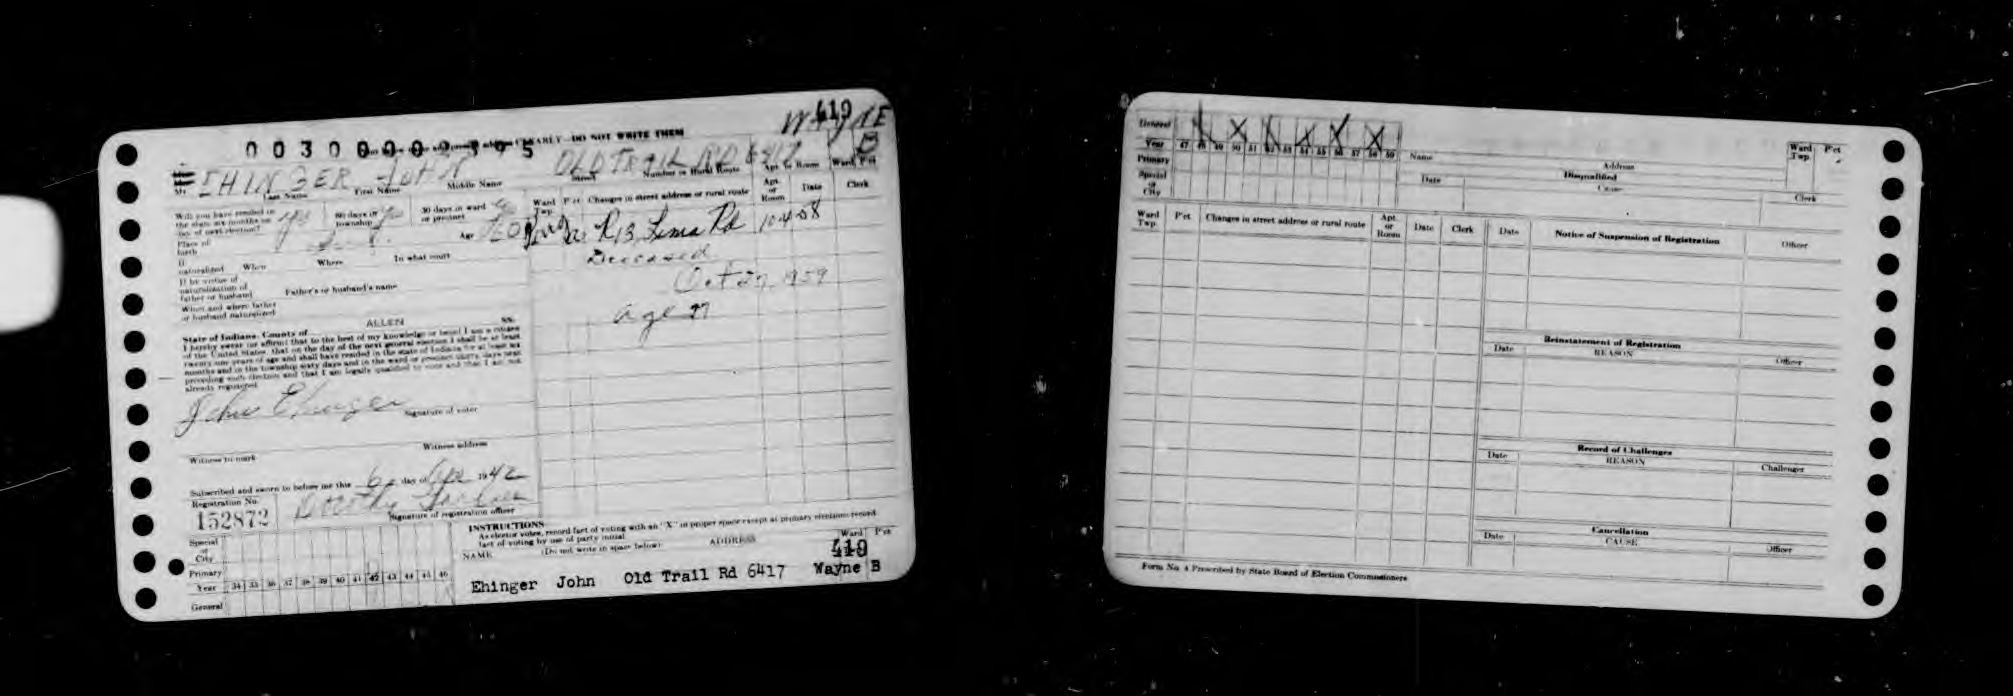 419
WAYNE
00300000395
CLEARLY - DO NOT WRITE THEM
B
Mr EHINGER JOHN OLD TRAIL RD 6417
Last Name First Name Middle Name Street Number or Rural Route Apt. or Room Ward P'ct
Will you have resided in the state six months on day of next election? yes 60 days in township yes 30 days in ward or precinct
Age
Place of birth
If naturalized When Where In what court
If by virtue of naturalization of father or husband Father's or husband's name
When and where father or husband naturalized
State of Indiana, County of ALLEN SS:
I hereby swear (or affirm) that to the best of my knowledge or belief I am a citizen
of the United States, that on the day of the next general election I shall be at least
twenty one years of age and shall have resided in the state of Indiana for at least six
months and in the township sixty days and in the ward or precinct thirty days next
preceding such election and that I am legally qualified to vote and that I am not
already registered
John Ehinger
Signature of voter
Witness to mark Witness address
Subscribed and sworn to before me this 6 day of Apr 1942
Registration No.
152872 Dorothy
Signature of registration officer
Ward Twp. P'ct Changes in street address or rural route Apt. or Room Date Clerk
R 13, Lima Rd 10-4-58
Deceased
Oct 27, 1959
age 77
Special or City
Primary
Year 34 35 36 37 38 39 40 41 42 43 44 45 46
General
INSTRUCTIONS
As elector votes, record fact of voting with an "X" in proper space except at primary elections record
fact of voting by use of party initial
NAME (Do not write in space below) ADDRESS Ward P'ct
419
Ehinger John Old Trail Rd 6417 Wayne B
General X X X X X X
Year 47 48 49 50 51 52 53 54 55 56 57 58 59
Primary
Special or City
Name Address Ward Twp. P'ct
Disqualified
Date Cause Clerk
Ward Twp. P'ct Changes in street address or rural route Apt. or Room Date Clerk
Date Notice of Suspension of Registration Officer
Reinstatement of Registration
Date REASON Officer
Record of Challenges
Date REASON Challenger
Cancellation
Date CAUSE Officer
Form No. 4 Prescribed by State Board of Election Commissioners